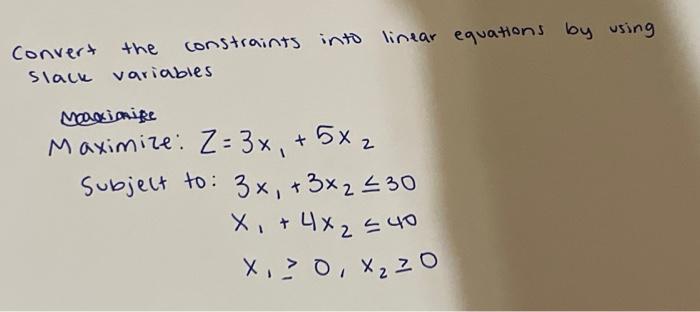 Convert the constraints into linear equations by using
slack variables
Maximize: Z = 3x₁ + 5x₂
Subject to: 3x₁ + 3x₂ ≤ 30
x₁ + 4x₂ ≤ 40
x₁ ≥ 0, x₂ ≥ 0